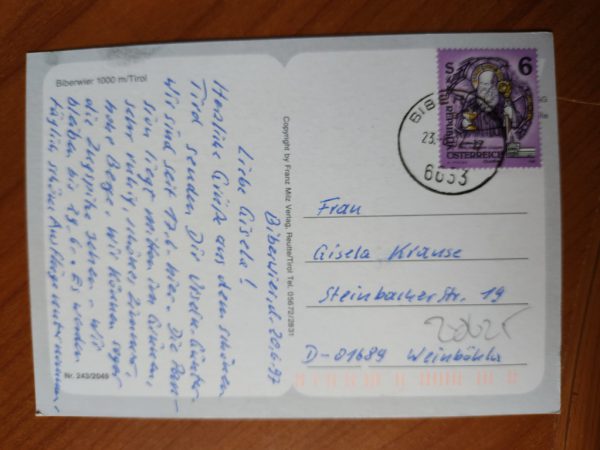 Biberwier 1000 m/Tirol
Biberwier, d. 20.6.97
Liebe Gisela!
Herzliche Grüße aus dem schönen
Tirol senden Dir
Wir sind seit 17.6. hier. Die Pen-
sion liegt mitten im Grünen,
sehr ruhig, schönes Zimmer,
hohe Berge. Wir können sogar
die Zugspitze sehen. Wir
bleiben bis 28.6. Es werden
täglich schöne Ausflüge unternommen.
Nr. 243/2049
Copyright by Franz Milz Verlag, Reutte/Tirol Tel. 05672/2831
S 6
ÖSTERREICH
BIBE
23.
6633
Frau
Gisela Krause
Steinbacher Str. 19
D-01689 Weinböhla